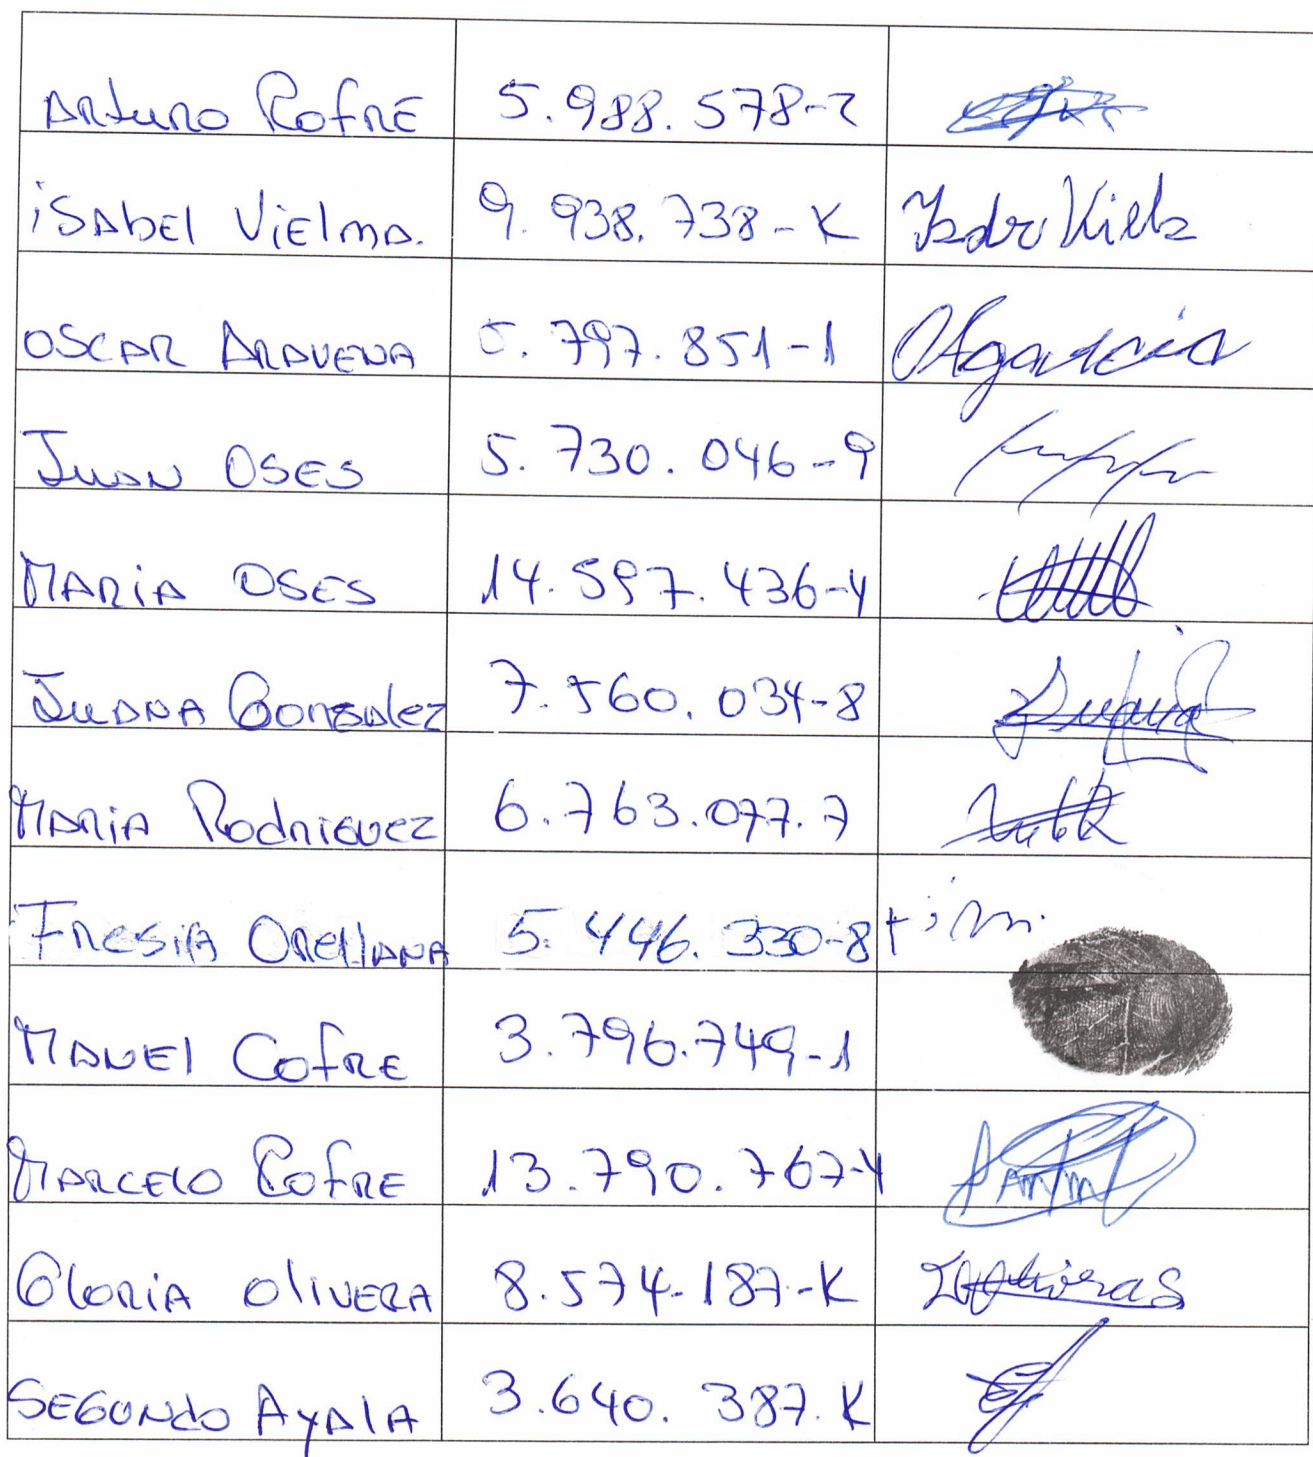 Arturo Cofré 5.988.578-2
Isabel Vielma. 9.938.738-K
Oscar Aravena 5.797.851-1
Juan Oses 5.730.046-9
Maria Oses 14.597.436-4
Juana Gonzalez 7.560.034-8
Maria Rodriguez 6.763.077.7
Fresia Orellana 5.446.330-8
Manuel Cofre 3.796.749-1
Marcelo Cofre 13.790.767-4
Gloria Olivera 8.574-187-K
Segundo Ayala 3.640.387.K